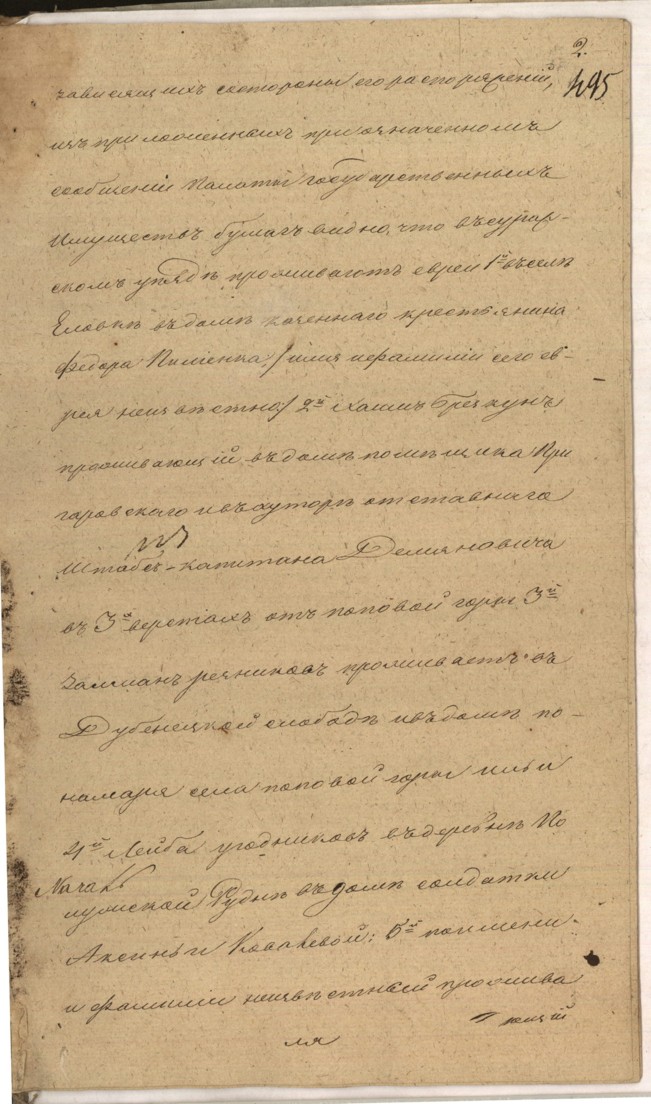 2.
495
зависящихъ состороны его распоряженій,
изъ приложенныхъ при означенномъ
сообщеніи Палаты Государственныхъ
Имуществъ бумагъ видно, что въ Сураж-
скомъ уѣздѣ проживаютъ евреи 1й въ селѣ
Еловкѣ въ домѣ казеннаго крестьянина
Федора Пиліенка /имя и фамиліи сего ев-
рея неизвѣстно/ 2й Хаимъ Брехунъ
проживающій въ домѣ помѣщика При
горовскаго и въ хуторѣ отставнаго
Штабсъ-капитана Демяновича
въ 3хъ верстахъ отъ поповой горы 3й
Залманъ резниковъ проживаетъ въ
Дубенецкой слободѣ и въ домѣ по-
намаря села поповой горы Ильи
4й Лейба угодниковъ въ деревнѣ Ко
лужской Руднѣ въ домѣ солдатки
Аксиньи Ковалевой; 5й по имени
и фамиліи неизвѣстный прожива
ющій